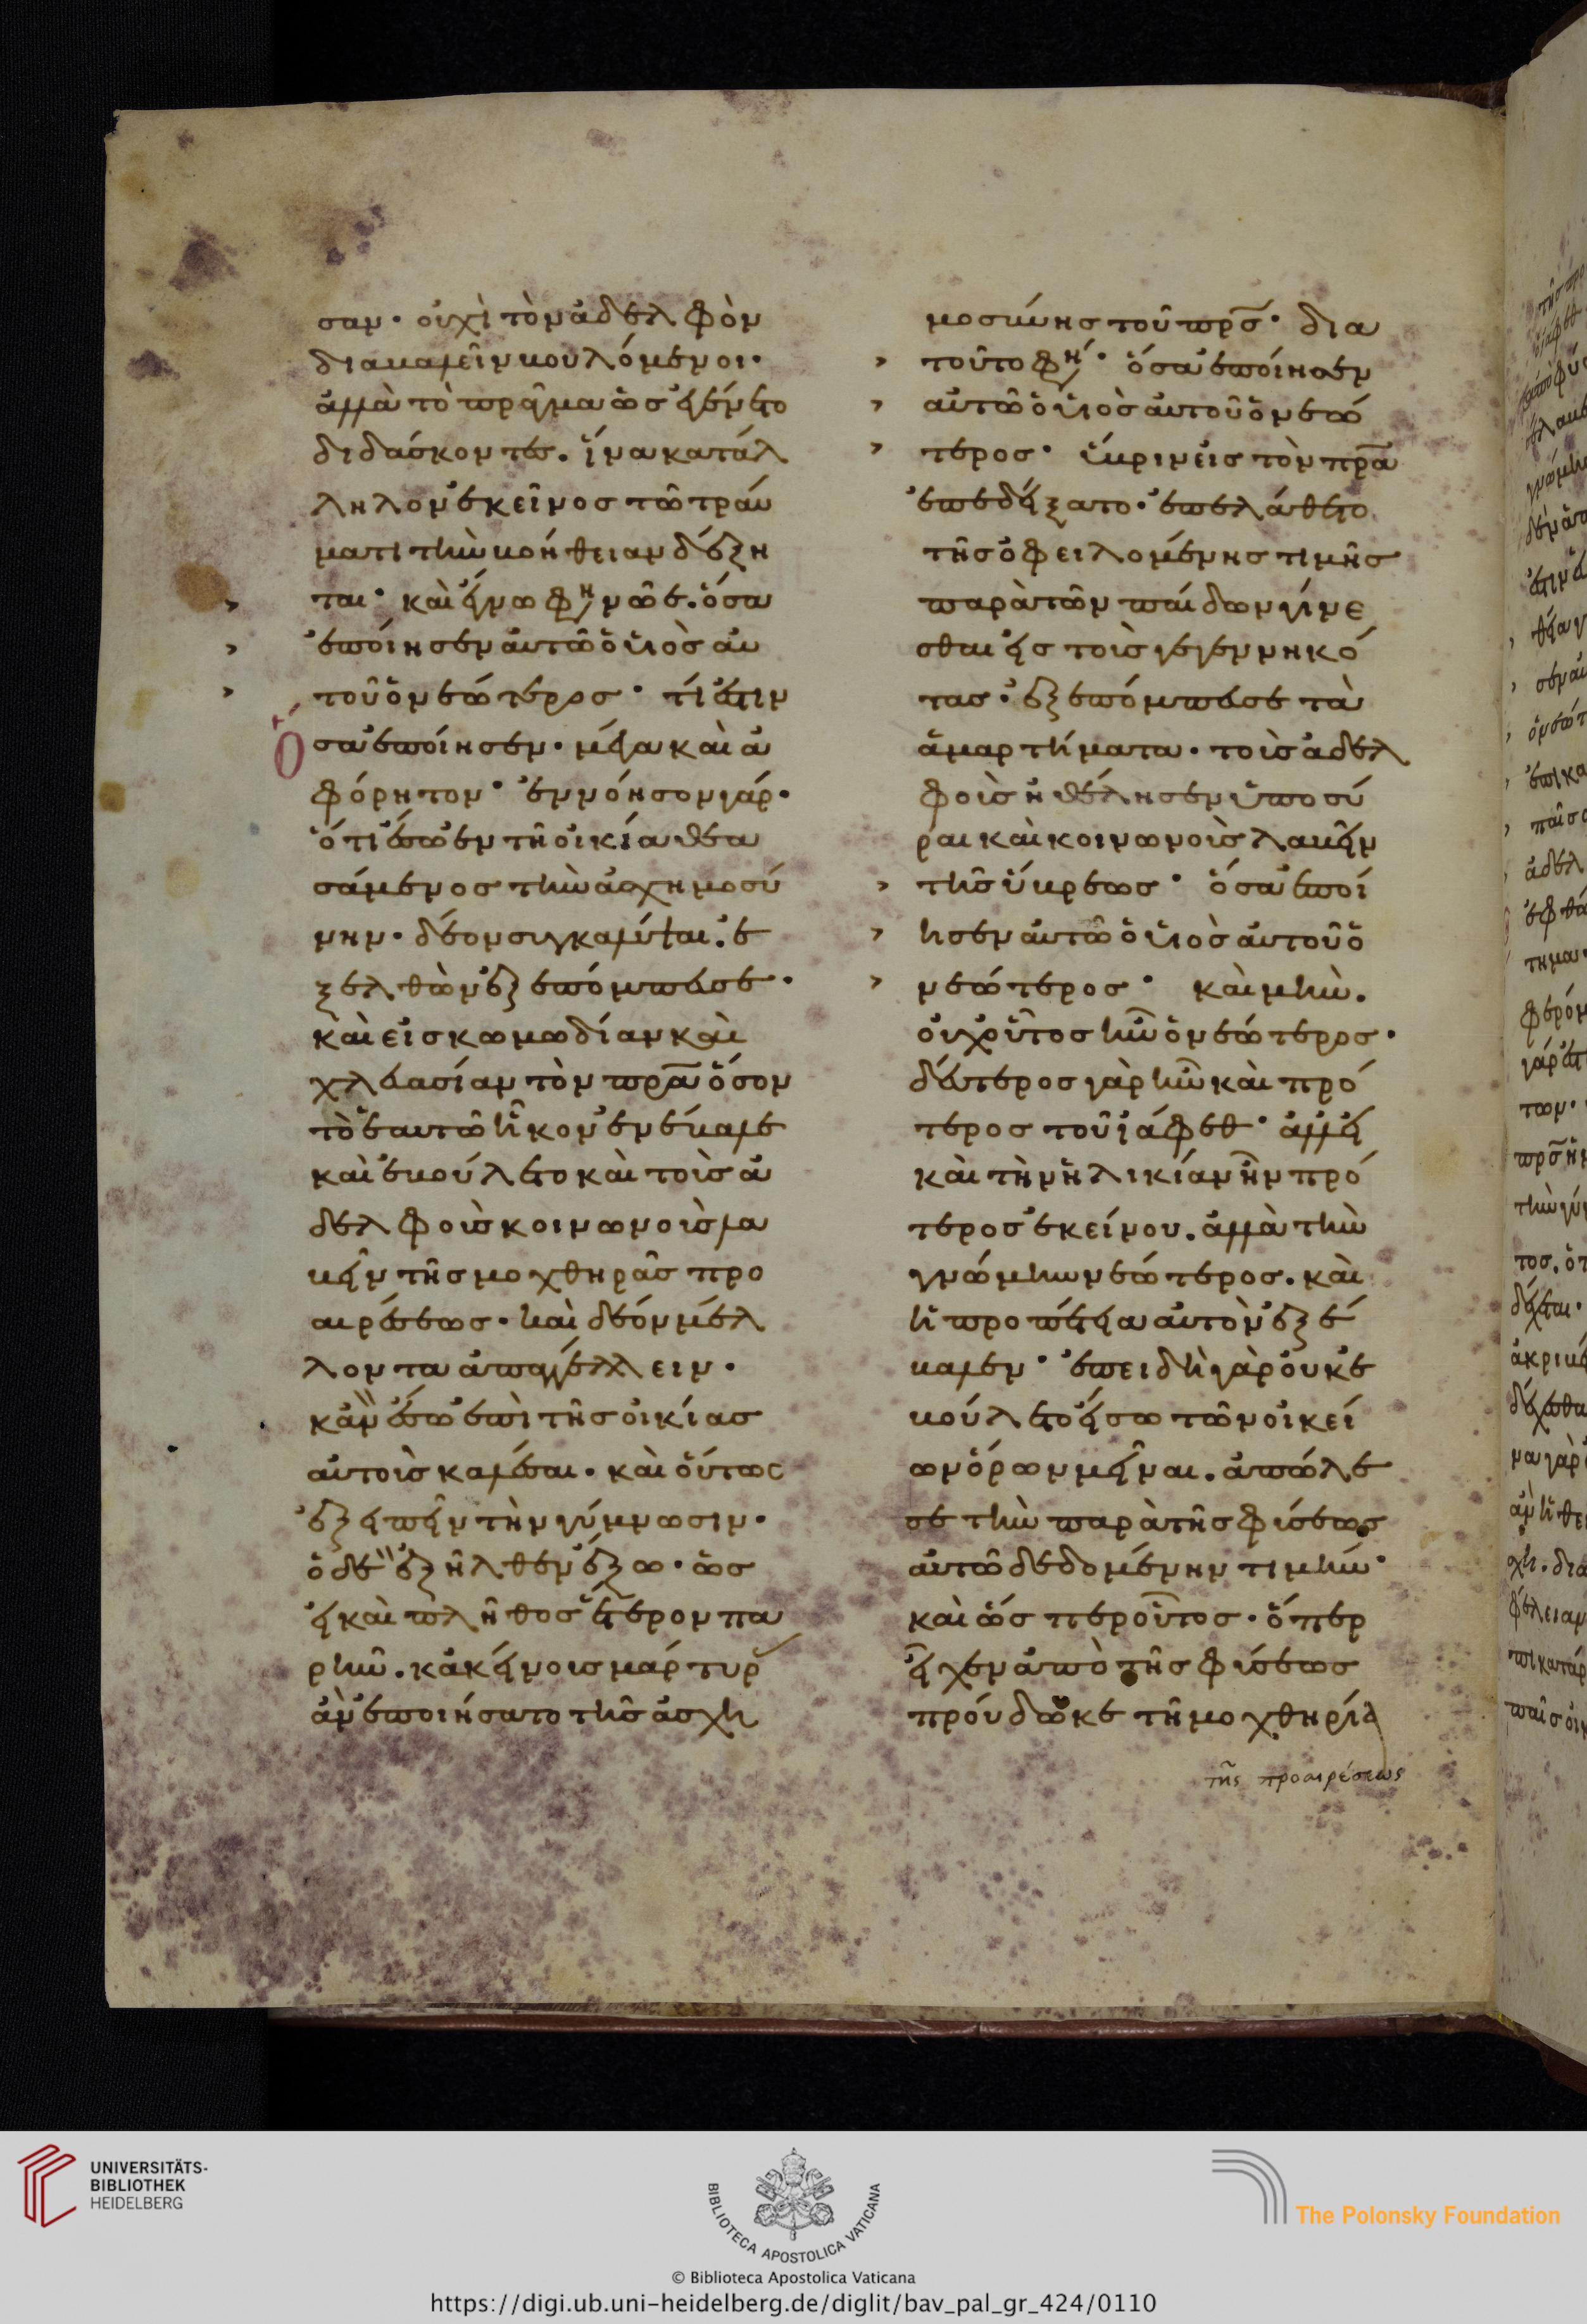 σαν· οὐχὶ τὸν ἀδελφὸν
διαβαλεῖν βουλόμενοι·
ἀλλὰ τὸ πρᾶγμα ὡς ἐγένετο
διδάσκοντες. ἵνα κατάλ
ληλον ἐκεῖνος τῶ τραύ
ματι τὴν βοήθειαν δέξη
ται· καὶ ἔγνω φη νῶε. ὅσα
ἐποίησεν αὐτῶ ὁ ϋἱὸς αὐ
τοῦ ὁ νεώτερος· τί ἐστιν
ὅσα ἐποίησεν· μέγα καὶ ἀ
φόρητον· ἐννόησον γάρ·
ὅτι ἔσω ἐν τῆ οἰκία θεα
σάμενος τὴν ἀσχημοσύ
νην· δέον συγκαλύψαι. ἐ
ξελθὼν ἐξεπόμπευσε·
καὶ εἰς κωμωδίαν καὶ
χλευασίαν τὸν πρα ὅσον
τὸ ἑαυτῶ ἧκον ἐνέβαλε
καὶ ἐβούλετο καὶ τοῖς ἀ
δελφοῖς κοινωνοῖς λα
βεῖν τῆς μοχθηρᾶς προ
αιρέσεως· καὶ δέον μέλ
λοντα ἀπαγγέλλειν·
κἂν ἔσω ἐπὶ τῆς οἰκίας
αὐτοῖς καλέσαι· καὶ οὕτως
ἐξειπεῖν τὴν γύμνωσιν·
ὁ δὲ ἐξῆλθεν ἔξω· ὡς
εἰ καὶ πλῆθος ἕτερον πα
ρῆν. κἀκείνοις μάρτυρ
ἂν ἐποιήσατο τῆς ἀσχη
μοσύνης τοῦ πρς· δια
τοῦτο φη· ὅσα ἐποίησεν
αὐτῶ ὁ ϋἱὸς αὐτοῦ ὁ νεώ
τερος· ὕβριν εἰς τὸν πρα
ἐπεδείξατο· ἐπελάθετο
τῆς ὀφειλομένης τιμῆς
παρὰ τῶν παίδων γίνε
σθαι εἰς τοὺς γεγεννηκό
τας· ἐξεπόμπευσε τὰ
ἁμαρτήματα· τοὺς ἀδελ
φοὺς ἠθέλησεν ὑποσύ
ραι καὶ κοινωνοὺς λαβεῖν
τῆς ὕβρεως· ὅσα ἐποί
ησεν αὐτῶ ὁ ϋἱὸς αὐτοῦ ὁ
νεώτερος· καὶ μὴν.
οὐχ οὗτος ἦν ὁ νεώτερος·
δεύτερος γὰρ ἦν καὶ πρό
τερος τοῦ ἰάφεθ· ἀλλ' εἰ
καὶ τὴν ἡλικίαν ἦν πρό
τερος ἐκείνου. ἀλλὰ τὴν
γνώμην νεώτερος. καὶ
ἡ προπέτεια αὐτὸν ἐξέ
βαλεν· ἐπειδὴ γὰρ οὐκ ἐ
βούλετο εἴσω τῶν οἰκεί
ων ὅρων μεῖναι. ἀπώλε
σε τὴν παρὰ τῆς φύσεως
αὐτῶ δεδομένην τιμήν·
καὶ ὥσπερ οὗτος· ὅπερ
εἶχεν ἀπὸ τῆς φύσεως
προύδωκε τῆ μοχθηρία
τῆς προαιρέσεως
UNIVERSITÄTS-
BIBLIOTHEK
HEIDELBERG
BIBLIOTECA APOSTOLICA VATICANA
The Polonsky Foundation
© Biblioteca Apostolica Vaticana
https://digi.ub.uni-heidelberg.de/diglit/bav_pal_gr_424/0110